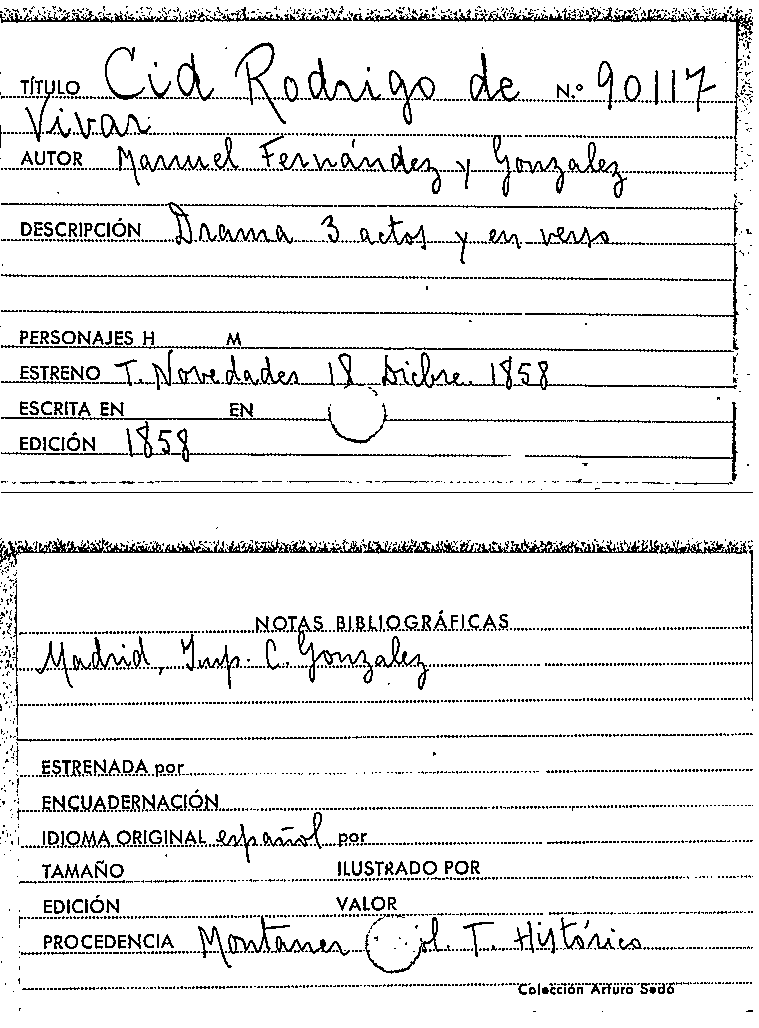 TÍTULO Cid Rodrigo de N.º 90117
Vivar
AUTOR Manuel Fernández y Gonzalez
DESCRIPCIÓN Drama 3 actos y en verso
PERSONAJES H M
ESTRENO T. Novedades 18 Dicbre. 1858
ESCRITA EN EN
EDICIÓN 1858
NOTAS BIBLIOGRÁFICAS
Madrid, Imp. C. Gonzalez
ESTRENADA por
ENCUADERNACIÓN
IDIOMA ORIGINAL español por
TAMAÑO ILUSTRADO POR
EDICIÓN VALOR
PROCEDENCIA Montaner T. Histórico
Colección Arturo Sedó